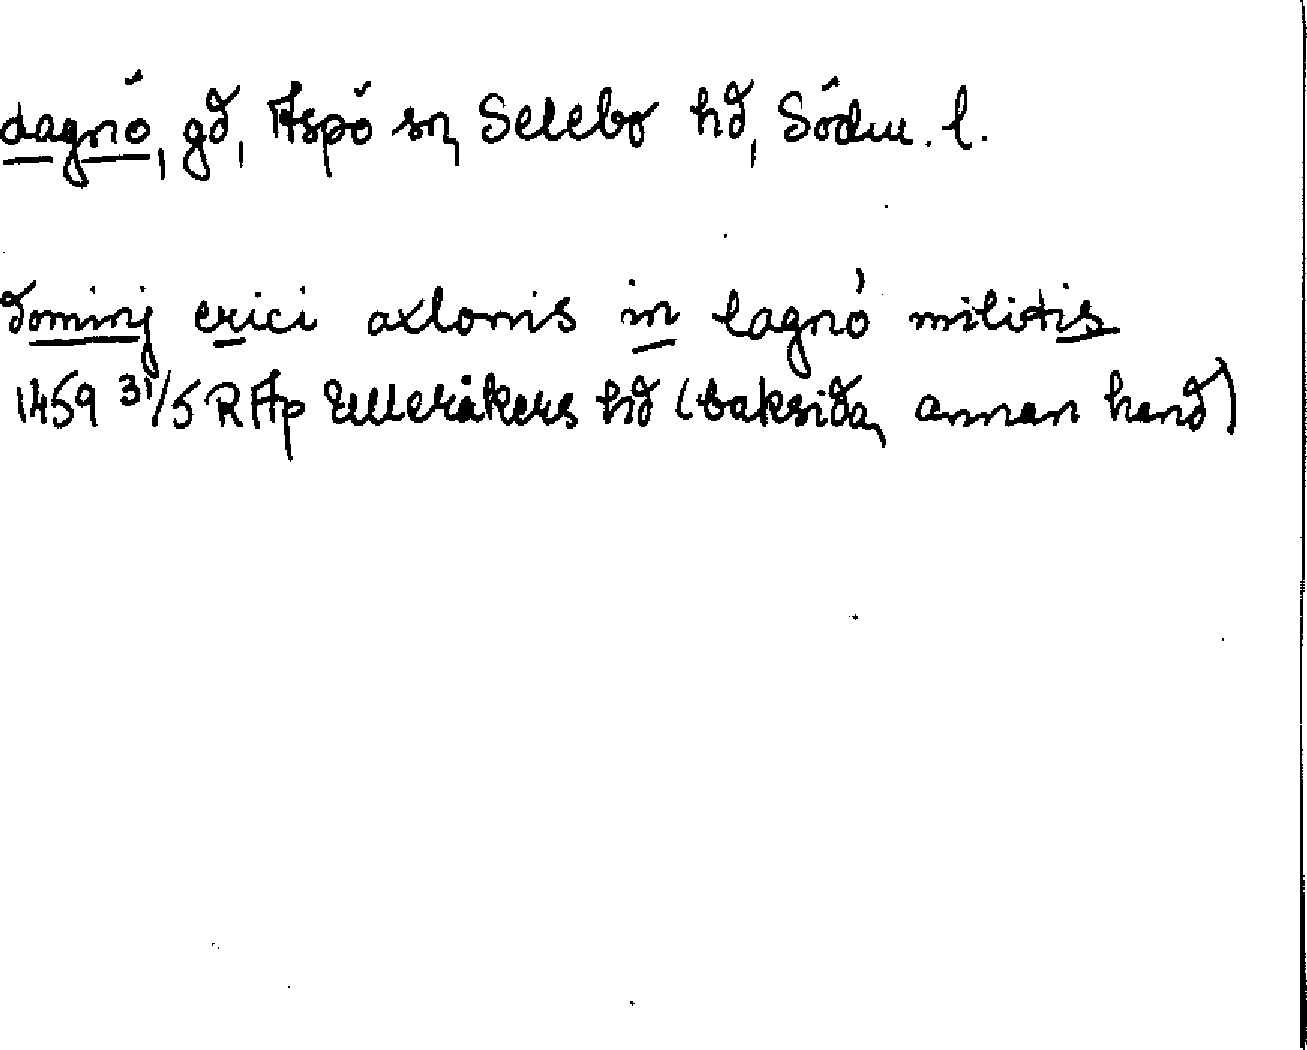 Lagnö, gd, Aspö sn, Selebo hd, Södm. l.
dominj erici axlonis in lagnó militis
1459 31/5 RAp Ulleråkers hd (baksida, annan hand)